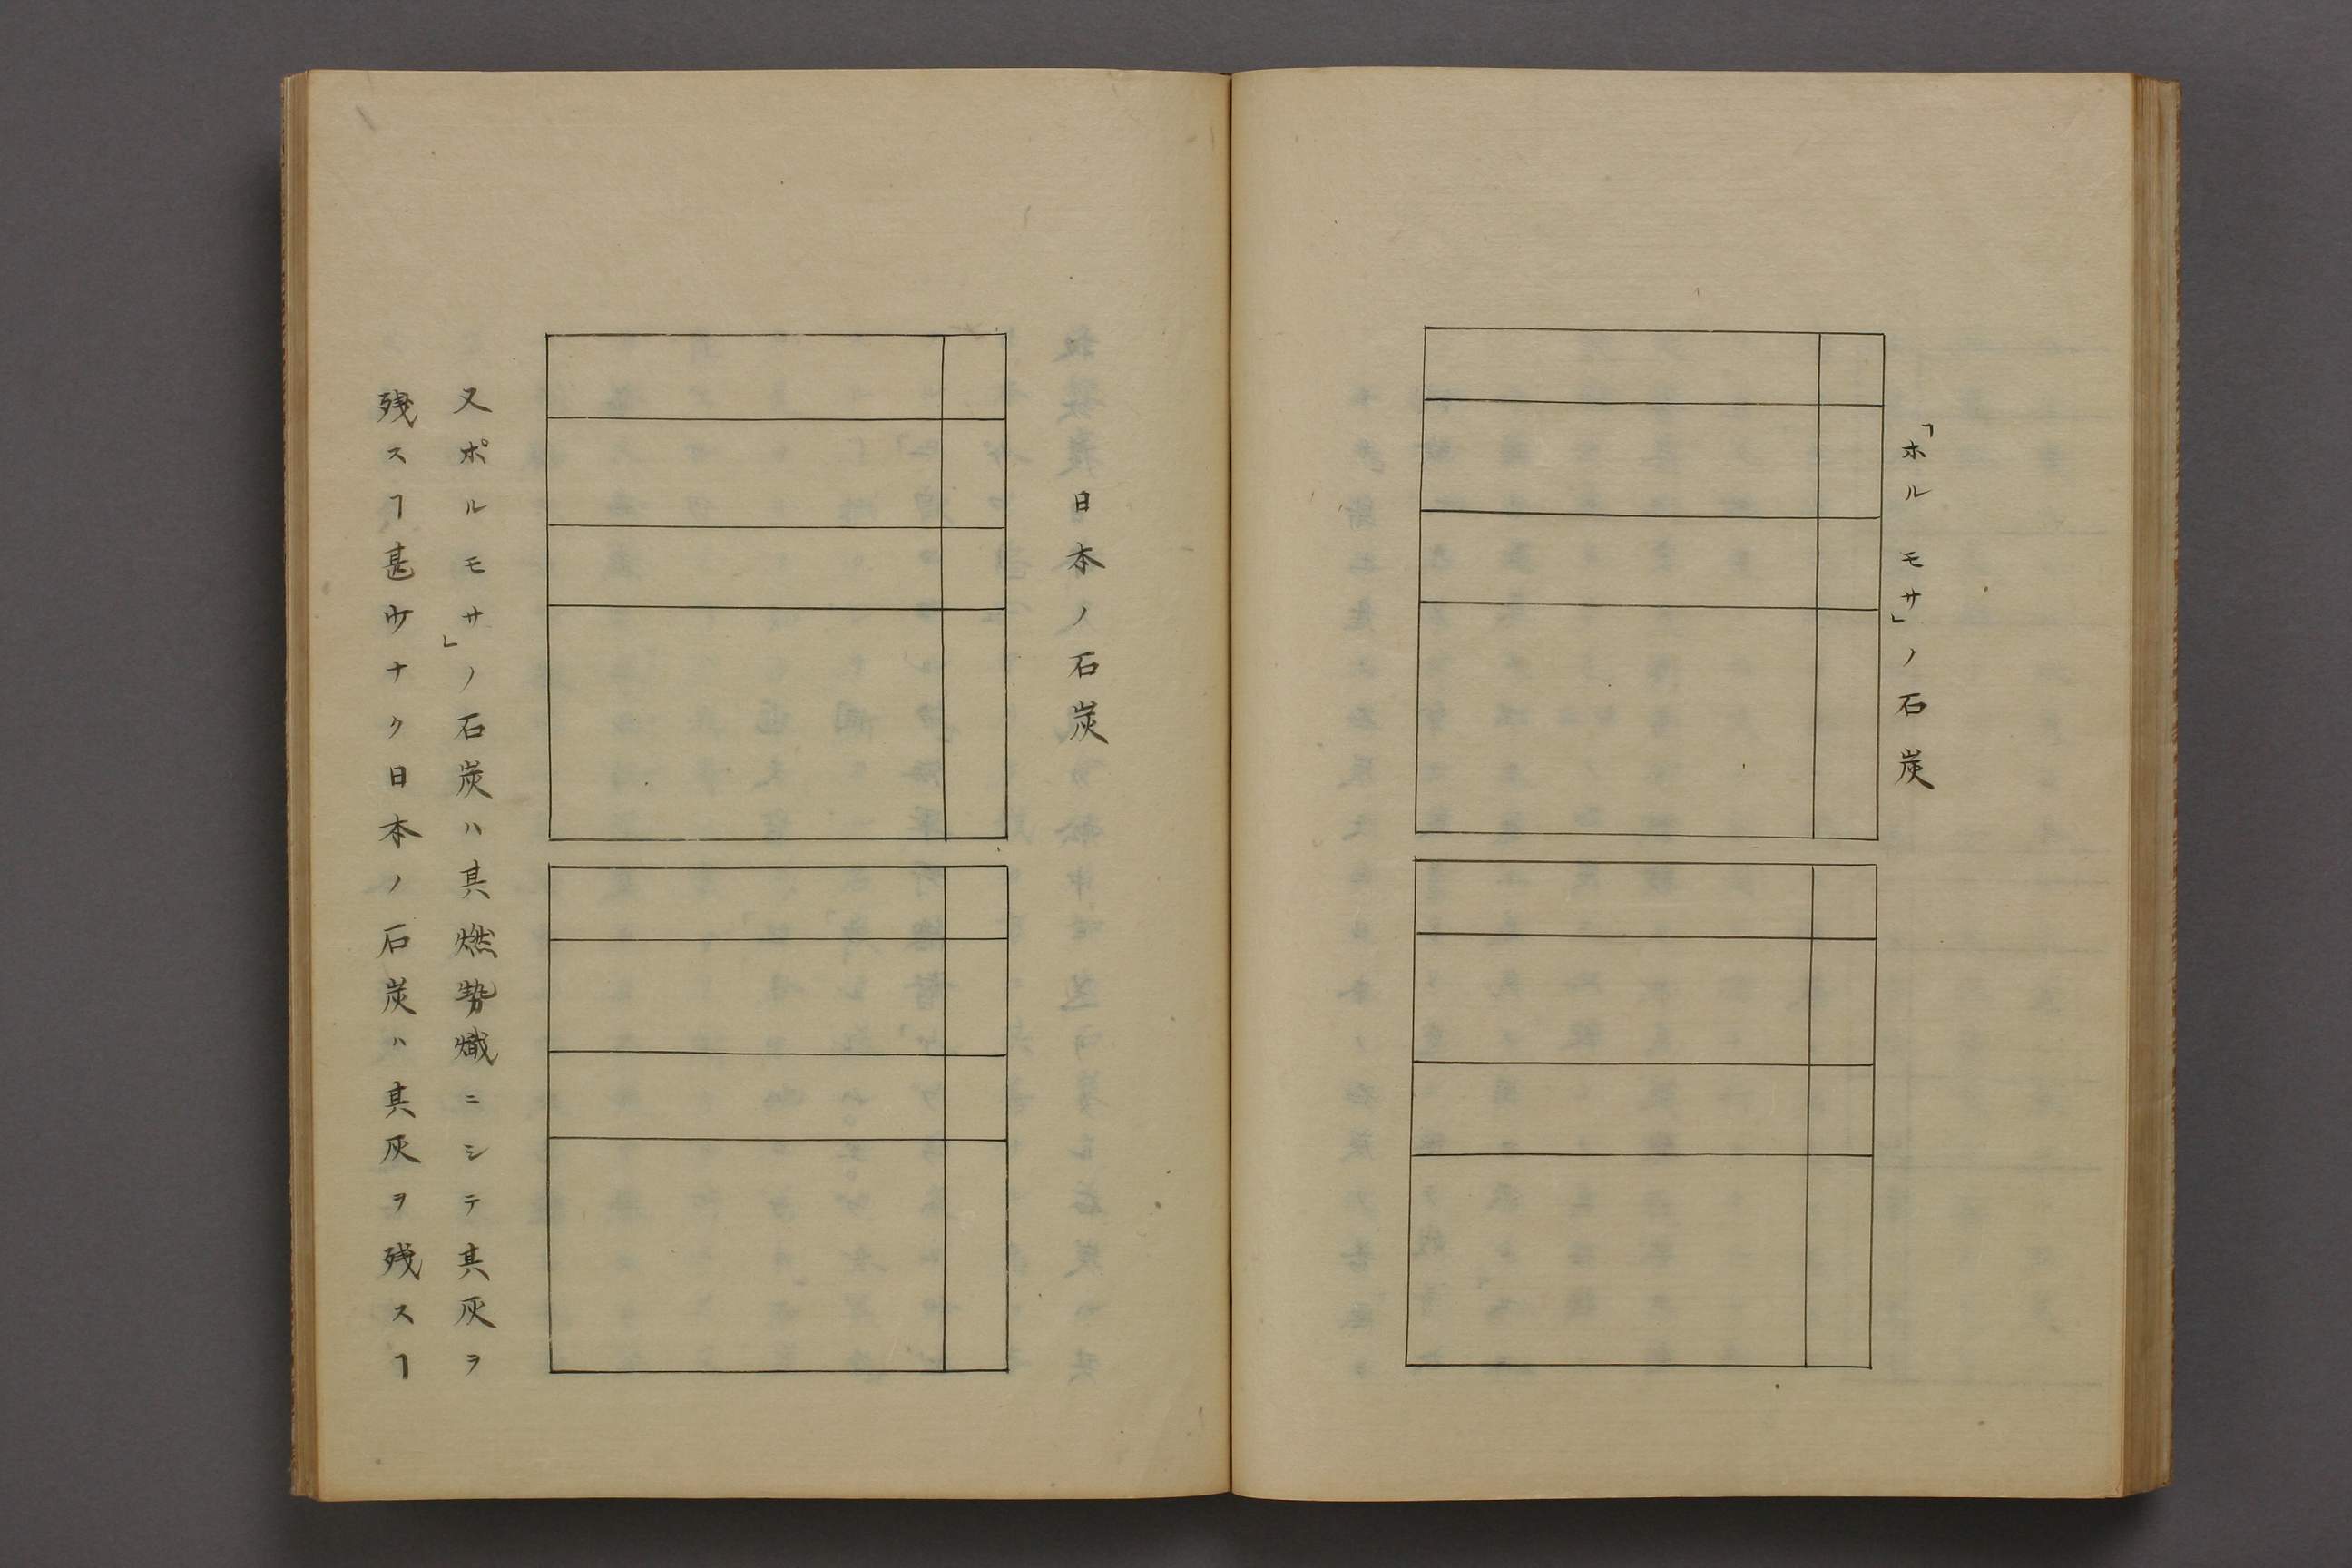 「ホルモサ」ノ石炭
日本ノ石炭
又ポルモサ」ノ石炭ハ其燃勢熾ニシテ其灰ヲ
残スヿ甚少ナク日本ノ石炭ハ其灰ヲ残スヿ